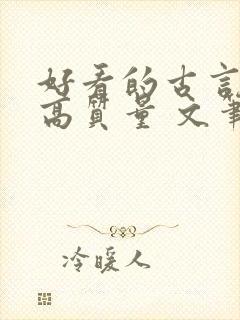 好看的古言
高质量 文笔
冷暖人